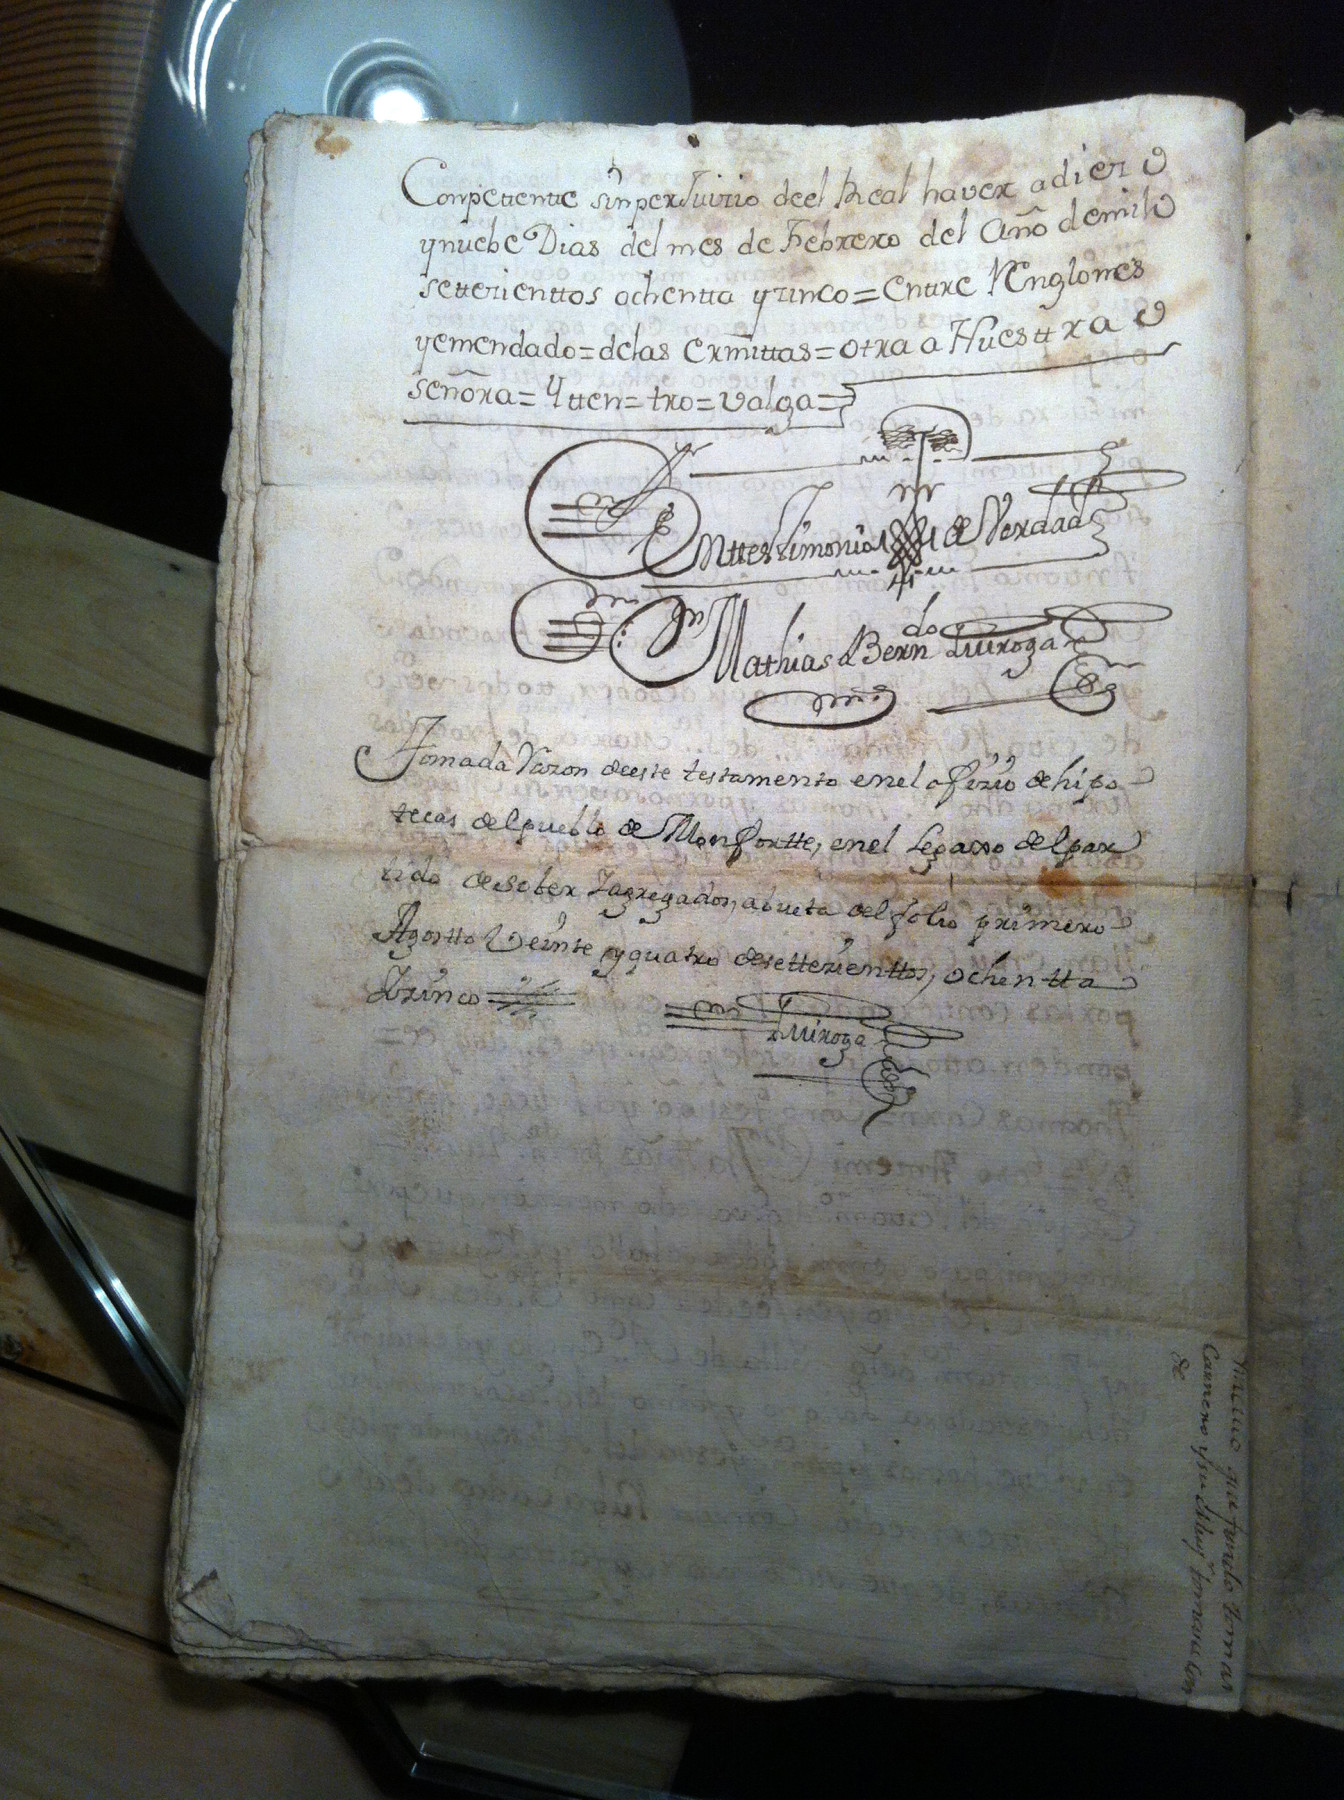 Conpettentte sinperJuirio deel Real haver a diez
ynuebe Dias del mes de Febrero del Año demil
settezienttos ochentta yzinco = Enttre Renglones
yemendado = delas ermittas = otra a Nuesttra
señora = Ytten = tro = valga =
Enttesttimonio de Verdad
Mathias Bern.do Quiroga
Tomada Razon deeste testamento enel ofizio de hipo-
tecas del pueblo de Monfortte, enel Legaxo del par
tido de Sober Yagregados, abuelta del folio primero
Agostto Veinte y quatro de settezienttos, ochentta
Yzinco
Quiroga
Vinculo que fundo Tomas
Carnero y su Muj.r
&c